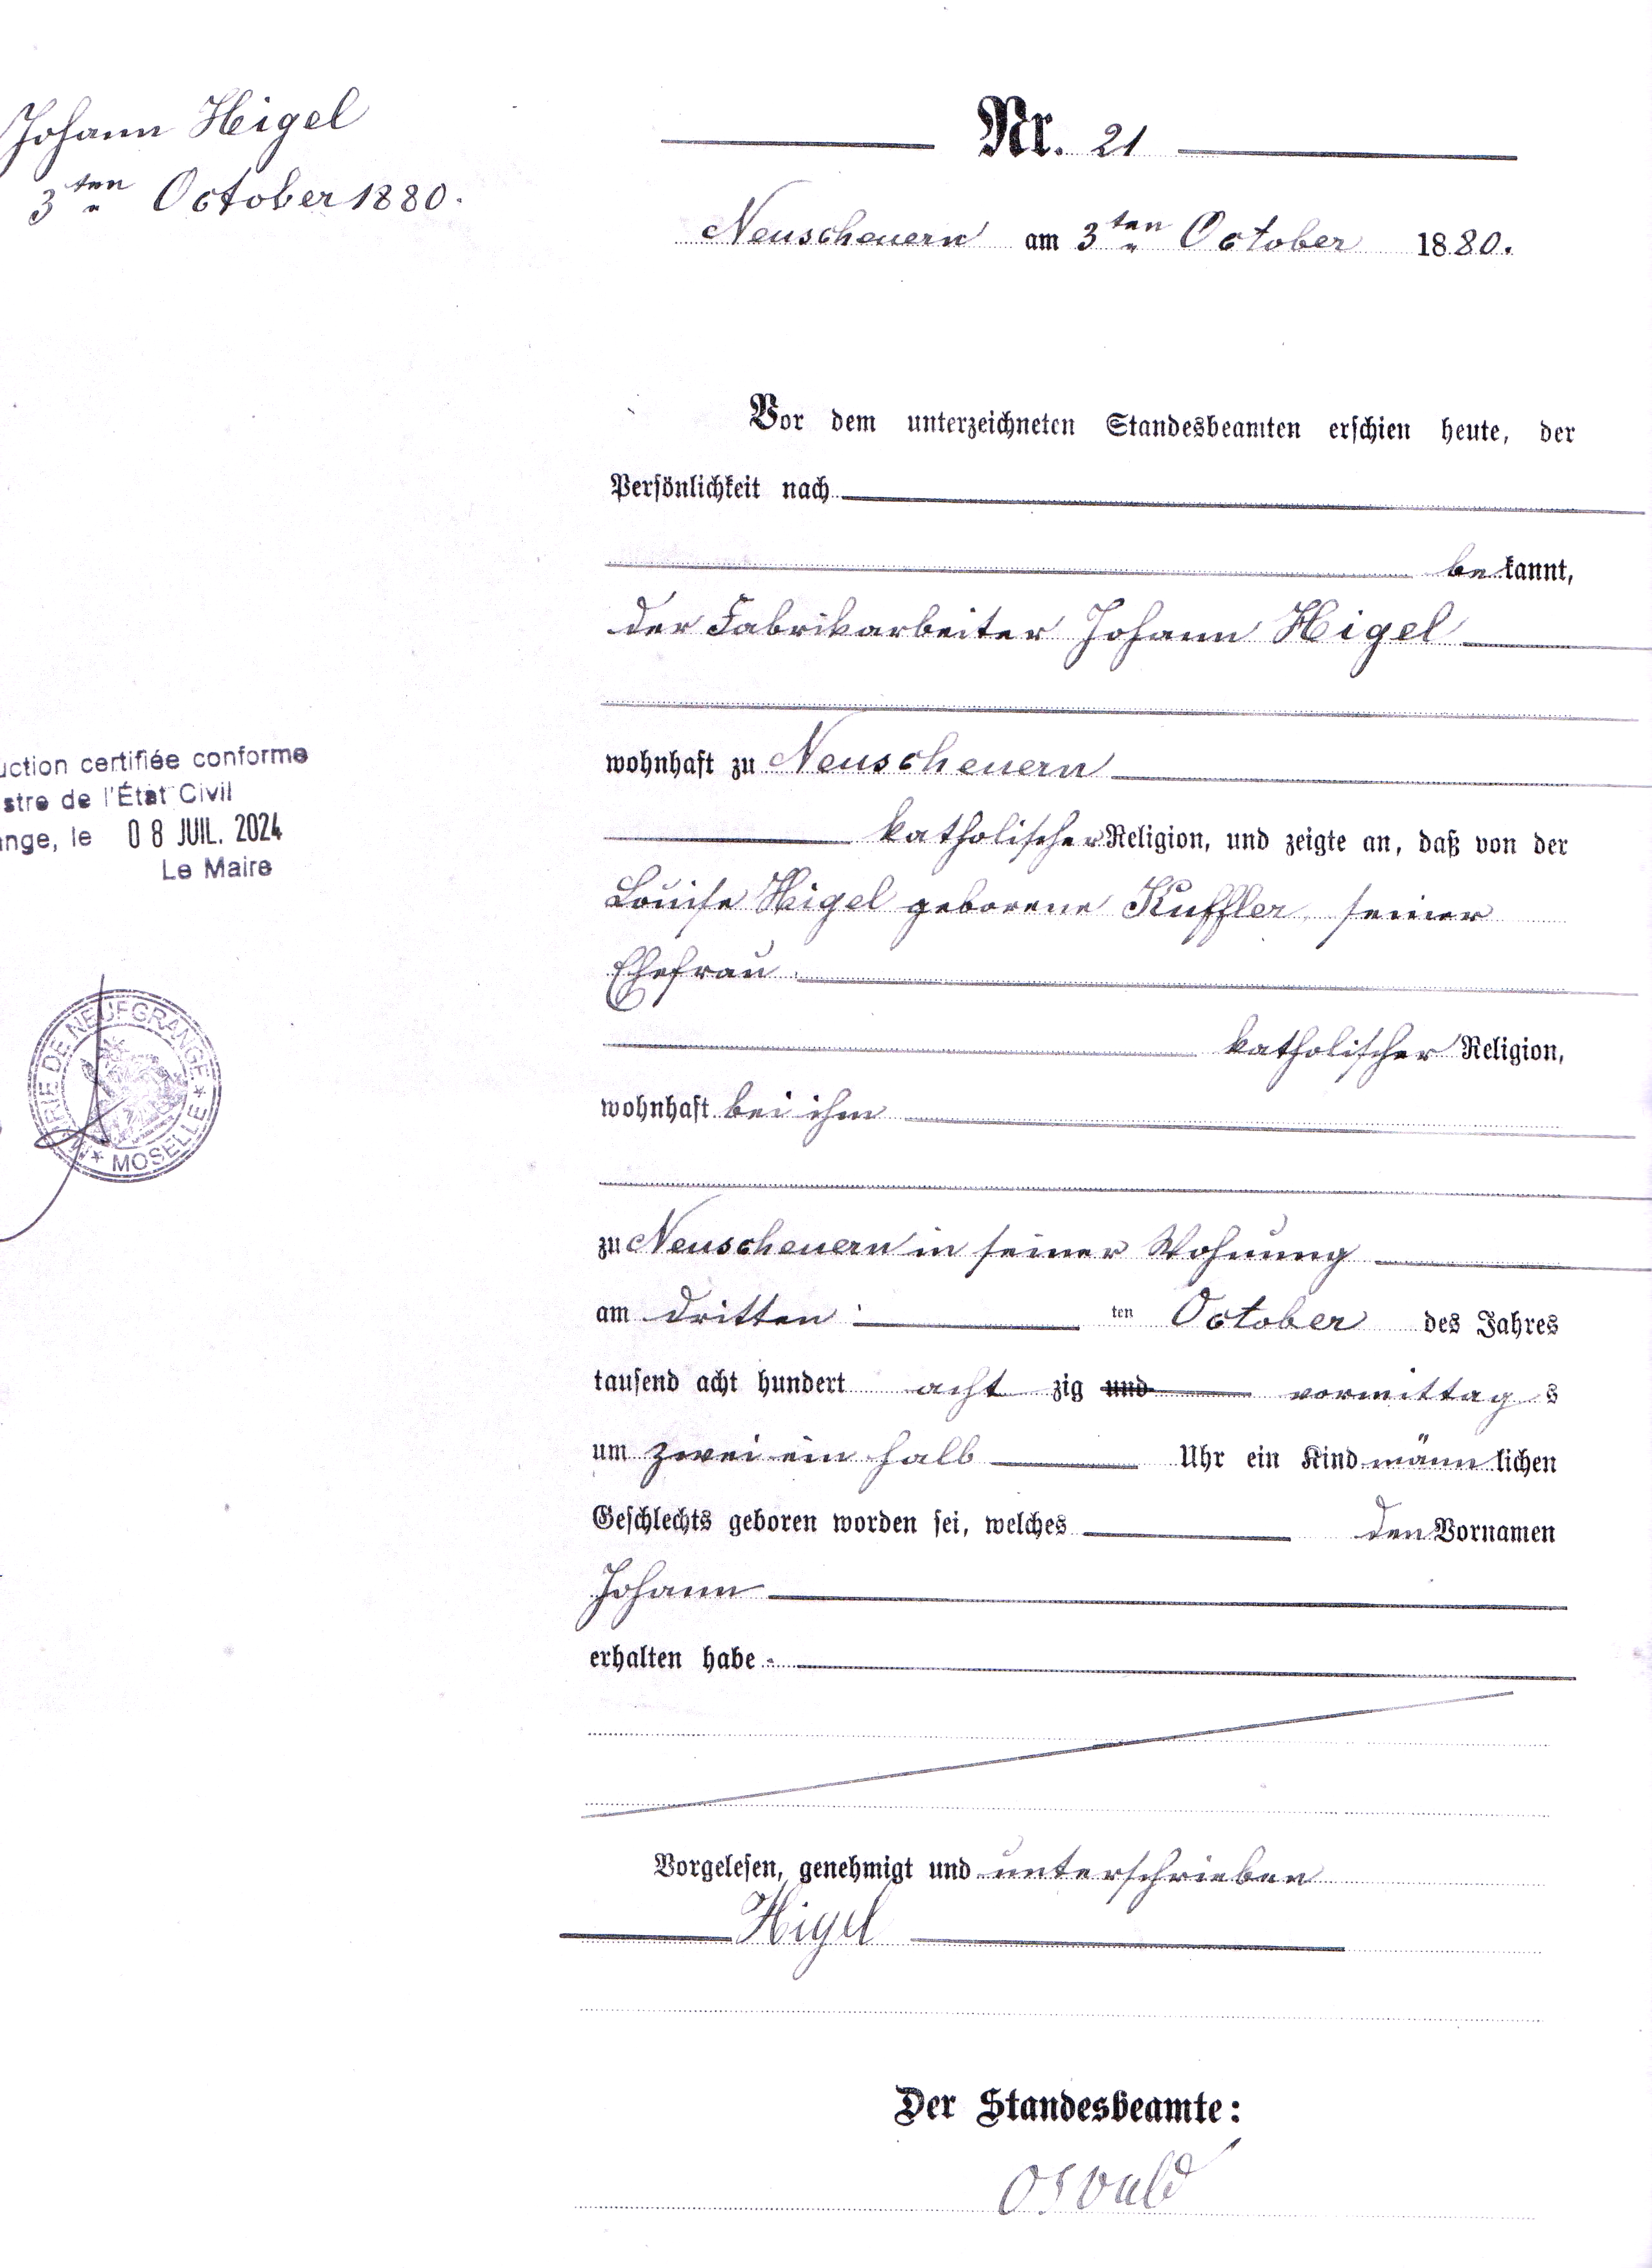 Johann Higel
3ten October 1880.
Nr. 21
Neuscheuern am 3ten October 1880.
Vor dem unterzeichneten Standesbeamten erschien heute, der
Persönlichkeit nach
bekannt,
der Fabrikarbeiter Johann Higel
wohnhaft zu Neuscheuern
katholischer Religion, und zeigte an, daß von der
Louise Higel geborene Kuffler, seiner
Ehefrau
katholischer Religion,
wohnhaft bei ihm
zu Neuscheuern in seiner Wohnung
am dritten ten October des Jahres
tausend acht hundert acht zig und vormittag s
um zwei ein halb Uhr ein Kind männlichen
Geschlechts geboren worden sei, welches den Vornamen
Johann
erhalten habe.
Vorgelesen, genehmigt und unterschrieben
Higel
Der Standesbeamte:
Osvald
uction certifiée conforme
stre de l'État Civil
ange, le 08 JUIL. 2024
Le Maire
MAIRIE DE NEUFGRANGE
* MOSELLE *